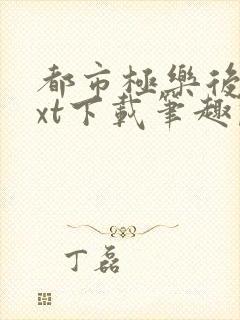 都市極樂後
xt下載筆趣
丁磊